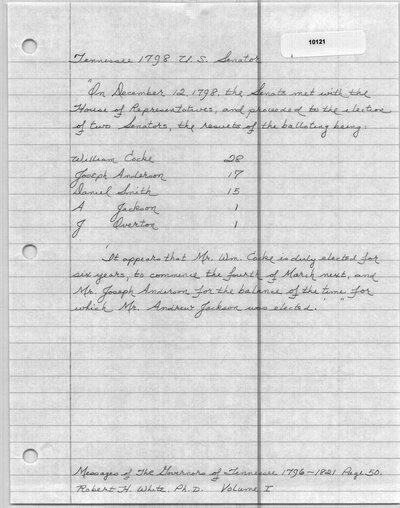 10121
Tennessee 1798 U.S. Senator
"On December 12, 1798, the Senate met with the
House of Representatives, and proceeded to the election
of two Senators, the results of the balloting being:
William Cocke 28
Joseph Anderson 17
Daniel Smith 15
A Jackson 1
J Overton 1
'It appears that Mr. Wm. Cocke is duly elected for
six years, to commence the fourth of March next, and
Mr. Joseph Anderson for the balance of the time for
which Mr. Andrew Jackson was elected.' "
Messages of The Governors of Tennessee 1796-1821 Page 50.
Robert H. White, Ph. D. Volume I